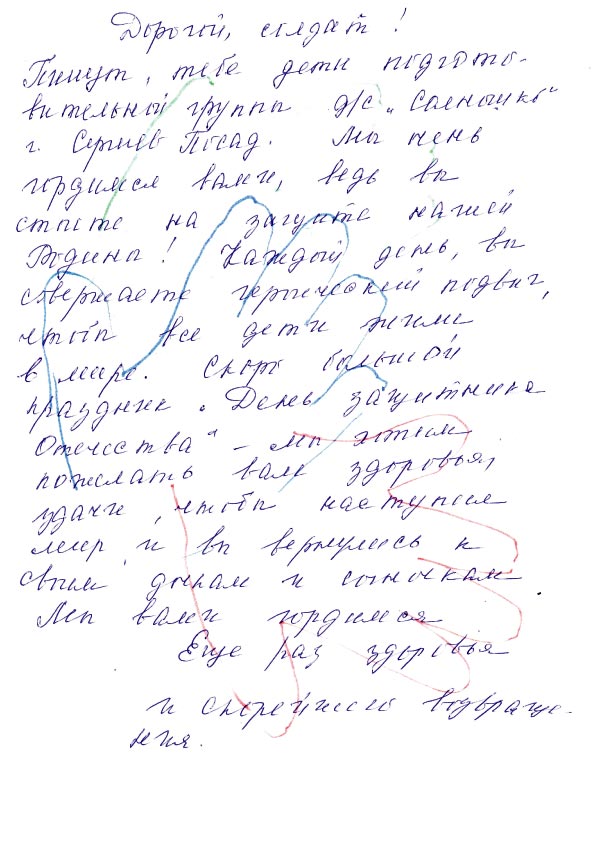 Дорогой, солдат!
Пишут, тебе дети подгото-
вительной группы д/с „Солнышко“
г. Сергиев Посад. Мы очень
гордимся вами, ведь вы
стоите на защите нашей
Родины! Каждый день, вы
совершаете героический подвиг,
чтобы все дети жили
в мире. Скоро большой
праздник „День защитника
Отечества“ – мы хотим
пожелать вам здоровья,
удачи, чтобы наступил
мир и вы вернулись к
своим дочкам и сыночкам
Мы вами гордимся
Еще раз здоровья
и скорейшего возвраще-
ния.